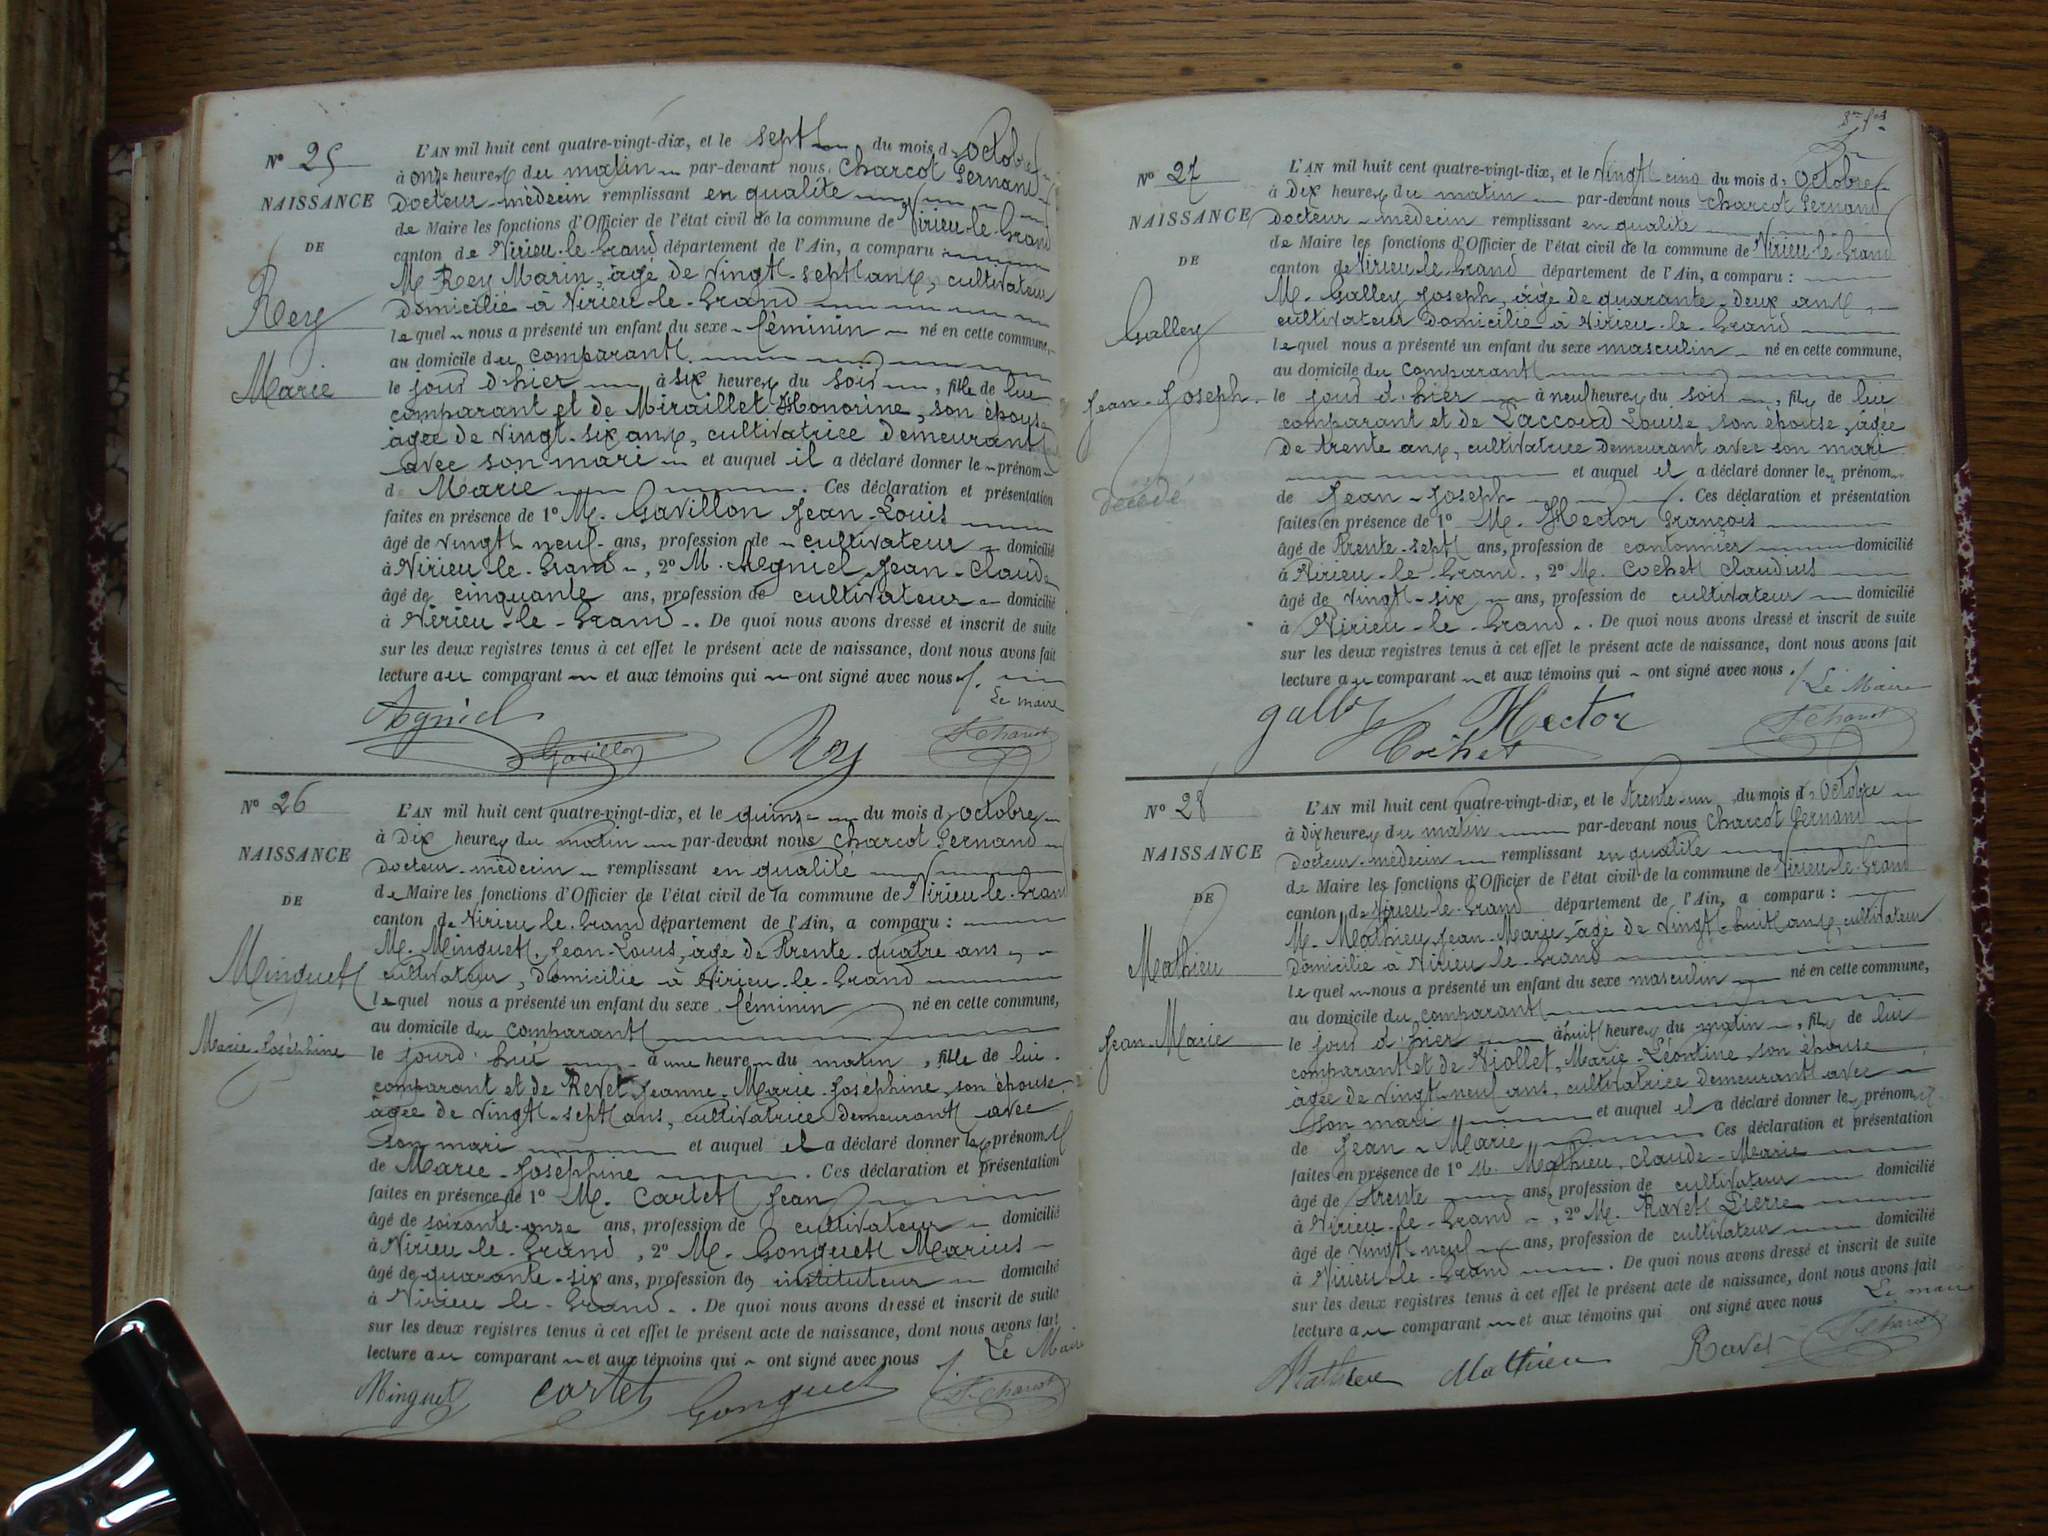 N° 25
NAISSANCE
DE
Rey
Marie
L'AN mil huit cent quatre-vingt-dix, et le sept du mois d'octobre
à onze heures du matin par-devant nous, Charcot Fernand
Docteur-médecin remplissant en qualité
de Maire les fonctions d'Officier de l'état civil de la commune de Virieu-le-Grand
canton de Virieu-le-Grand département de l'Ain, a comparu :
M. Rey Marin, âgé de vingt-sept ans, cultivateur
domicilié à Virieu-le-Grand
lequel nous a présenté un enfant du sexe féminin né en cette commune,
au domicile du comparant
le jour d'hier à six heures du soir, fille de lui
comparant et de Miraillet Honorine, son épouse
âgée de vingt-six ans, cultivatrice demeurant
avec son mari et auquel il a déclaré donner le prénom
de Marie. Ces déclaration et présentation
faites en présence de 1° M. Gavillon Jean-Louis
âgé de vingt-neuf ans, profession de cultivateur domicilié
à Virieu-le-Grand, 2° M. Agniel Jean-Claude
âgé de cinquante ans, profession de cultivateur domicilié
à Virieu-le-Grand. De quoi nous avons dressé et inscrit de suite
sur les deux registres tenus à cet effet le présent acte de naissance, dont nous avons fait
lecture au comparant et aux témoins qui ont signé avec nous.
Le maire
Agniel Gavillon Rey F. Charcot
N° 26
NAISSANCE
DE
Minguet
Marie-Joséphine
L'AN mil huit cent quatre-vingt-dix, et le quinze du mois d'octobre
à dix heures du matin par-devant nous Charcot Fernand
Docteur-médecin remplissant en qualité
de Maire les fonctions d'Officier de l'état civil de la commune de Virieu-le-Grand
canton de Virieu-le-Grand département de l'Ain, a comparu :
M. Minguet, Jean-Louis, âgé de trente-quatre ans,
cultivateur, domicilié à Virieu-le-Grand
lequel nous a présenté un enfant du sexe féminin né en cette commune,
au domicile du comparant
le jourd'hui à une heure du matin, fille de lui
comparant et de Revet Jeanne-Marie-Joséphine, son épouse
âgée de vingt-sept ans, cultivatrice demeurant avec
son mari et auquel il a déclaré donner les prénoms
de Marie-Joséphine. Ces déclaration et présentation
faites en présence de 1° M. Cartet Jean
âgé de soixante-onze ans, profession de cultivateur domicilié
à Virieu-le-Grand, 2° M. Gonguet Marius
âgé de quarante-six ans, profession de instituteur domicilié
à Virieu-le-Grand. De quoi nous avons dressé et inscrit de suite
sur les deux registres tenus à cet effet le présent acte de naissance, dont nous avons fait
lecture au comparant et aux témoins qui ont signé avec nous
Le Maire
Minguet Cartet Gonguet F. Charcot
N° 27
NAISSANCE
DE
Galley
Jean-Joseph
Décédé
L'AN mil huit cent quatre-vingt-dix, et le vingt-cinq du mois d'octobre
à dix heures du matin par-devant nous Charcot Fernand
Docteur-médecin remplissant en qualité
de Maire les fonctions d'Officier de l'état civil de la commune de Virieu-le-Grand
canton de Virieu-le-Grand département de l'Ain, a comparu :
M. Galley Joseph, âgé de quarante-deux ans,
cultivateur domicilié à Virieu-le-Grand
lequel nous a présenté un enfant du sexe masculin né en cette commune,
au domicile du comparant
le jour d'hier à neuf heures du soir, fils de lui
comparant et de Paccoud Louise, son épouse, âgée
de trente ans, cultivatrice demeurant avec son mari
et auquel il a déclaré donner les prénom
de Jean-Joseph. Ces déclaration et présentation
faites en présence de 1° M. Hector François
âgé de trente-sept ans, profession de cantonnier domicilié
à Virieu-le-Grand, 2° M. Cochet Claudius
âgé de vingt-six ans, profession de cultivateur domicilié
à Virieu-le-Grand. De quoi nous avons dressé et inscrit de suite
sur les deux registres tenus à cet effet le présent acte de naissance, dont nous avons fait
lecture au comparant et aux témoins qui ont signé avec nous.
Le Maire
galley Hector Cochet F. Charcot
N° 28
NAISSANCE
DE
Mathieu
Jean-Marie
L'AN mil huit cent quatre-vingt-dix, et le trente-un du mois d'octobre
à dix heures du matin par-devant nous Charcot Fernand
Docteur-médecin remplissant en qualité
de Maire les fonctions d'Officier de l'état civil de la commune de Virieu-le-Grand
canton de Virieu-le-Grand département de l'Ain, a comparu :
M. Mathieu Jean-Marie, âgé de vingt-huit ans, cultivateur
domicilié à Virieu-le-Grand
lequel nous a présenté un enfant du sexe masculin né en cette commune,
au domicile du comparant
le jour d'hier à huit heures du matin, fils de lui
comparant et de Viollet, Marie-Léontine son épouse
âgée de vingt-neuf ans, cultivatrice demeurant avec
son mari et auquel il a déclaré donner les prénoms
de Jean-Marie Ces déclaration et présentation
faites en présence de 1° M. Mathieu, Claude-Marie
âgé de trente ans, profession de cultivateur domicilié
à Virieu-le-Grand, 2° M. Ravet Pierre
âgé de vingt-neuf ans, profession de cultivateur domicilié
à Virieu-le-Grand. De quoi nous avons dressé et inscrit de suite
sur les deux registres tenus à cet effet le présent acte de naissance, dont nous avons fait
lecture au comparant et aux témoins qui ont signé avec nous
Le maire
Mathieu Mathieu Ravet F. Charcot